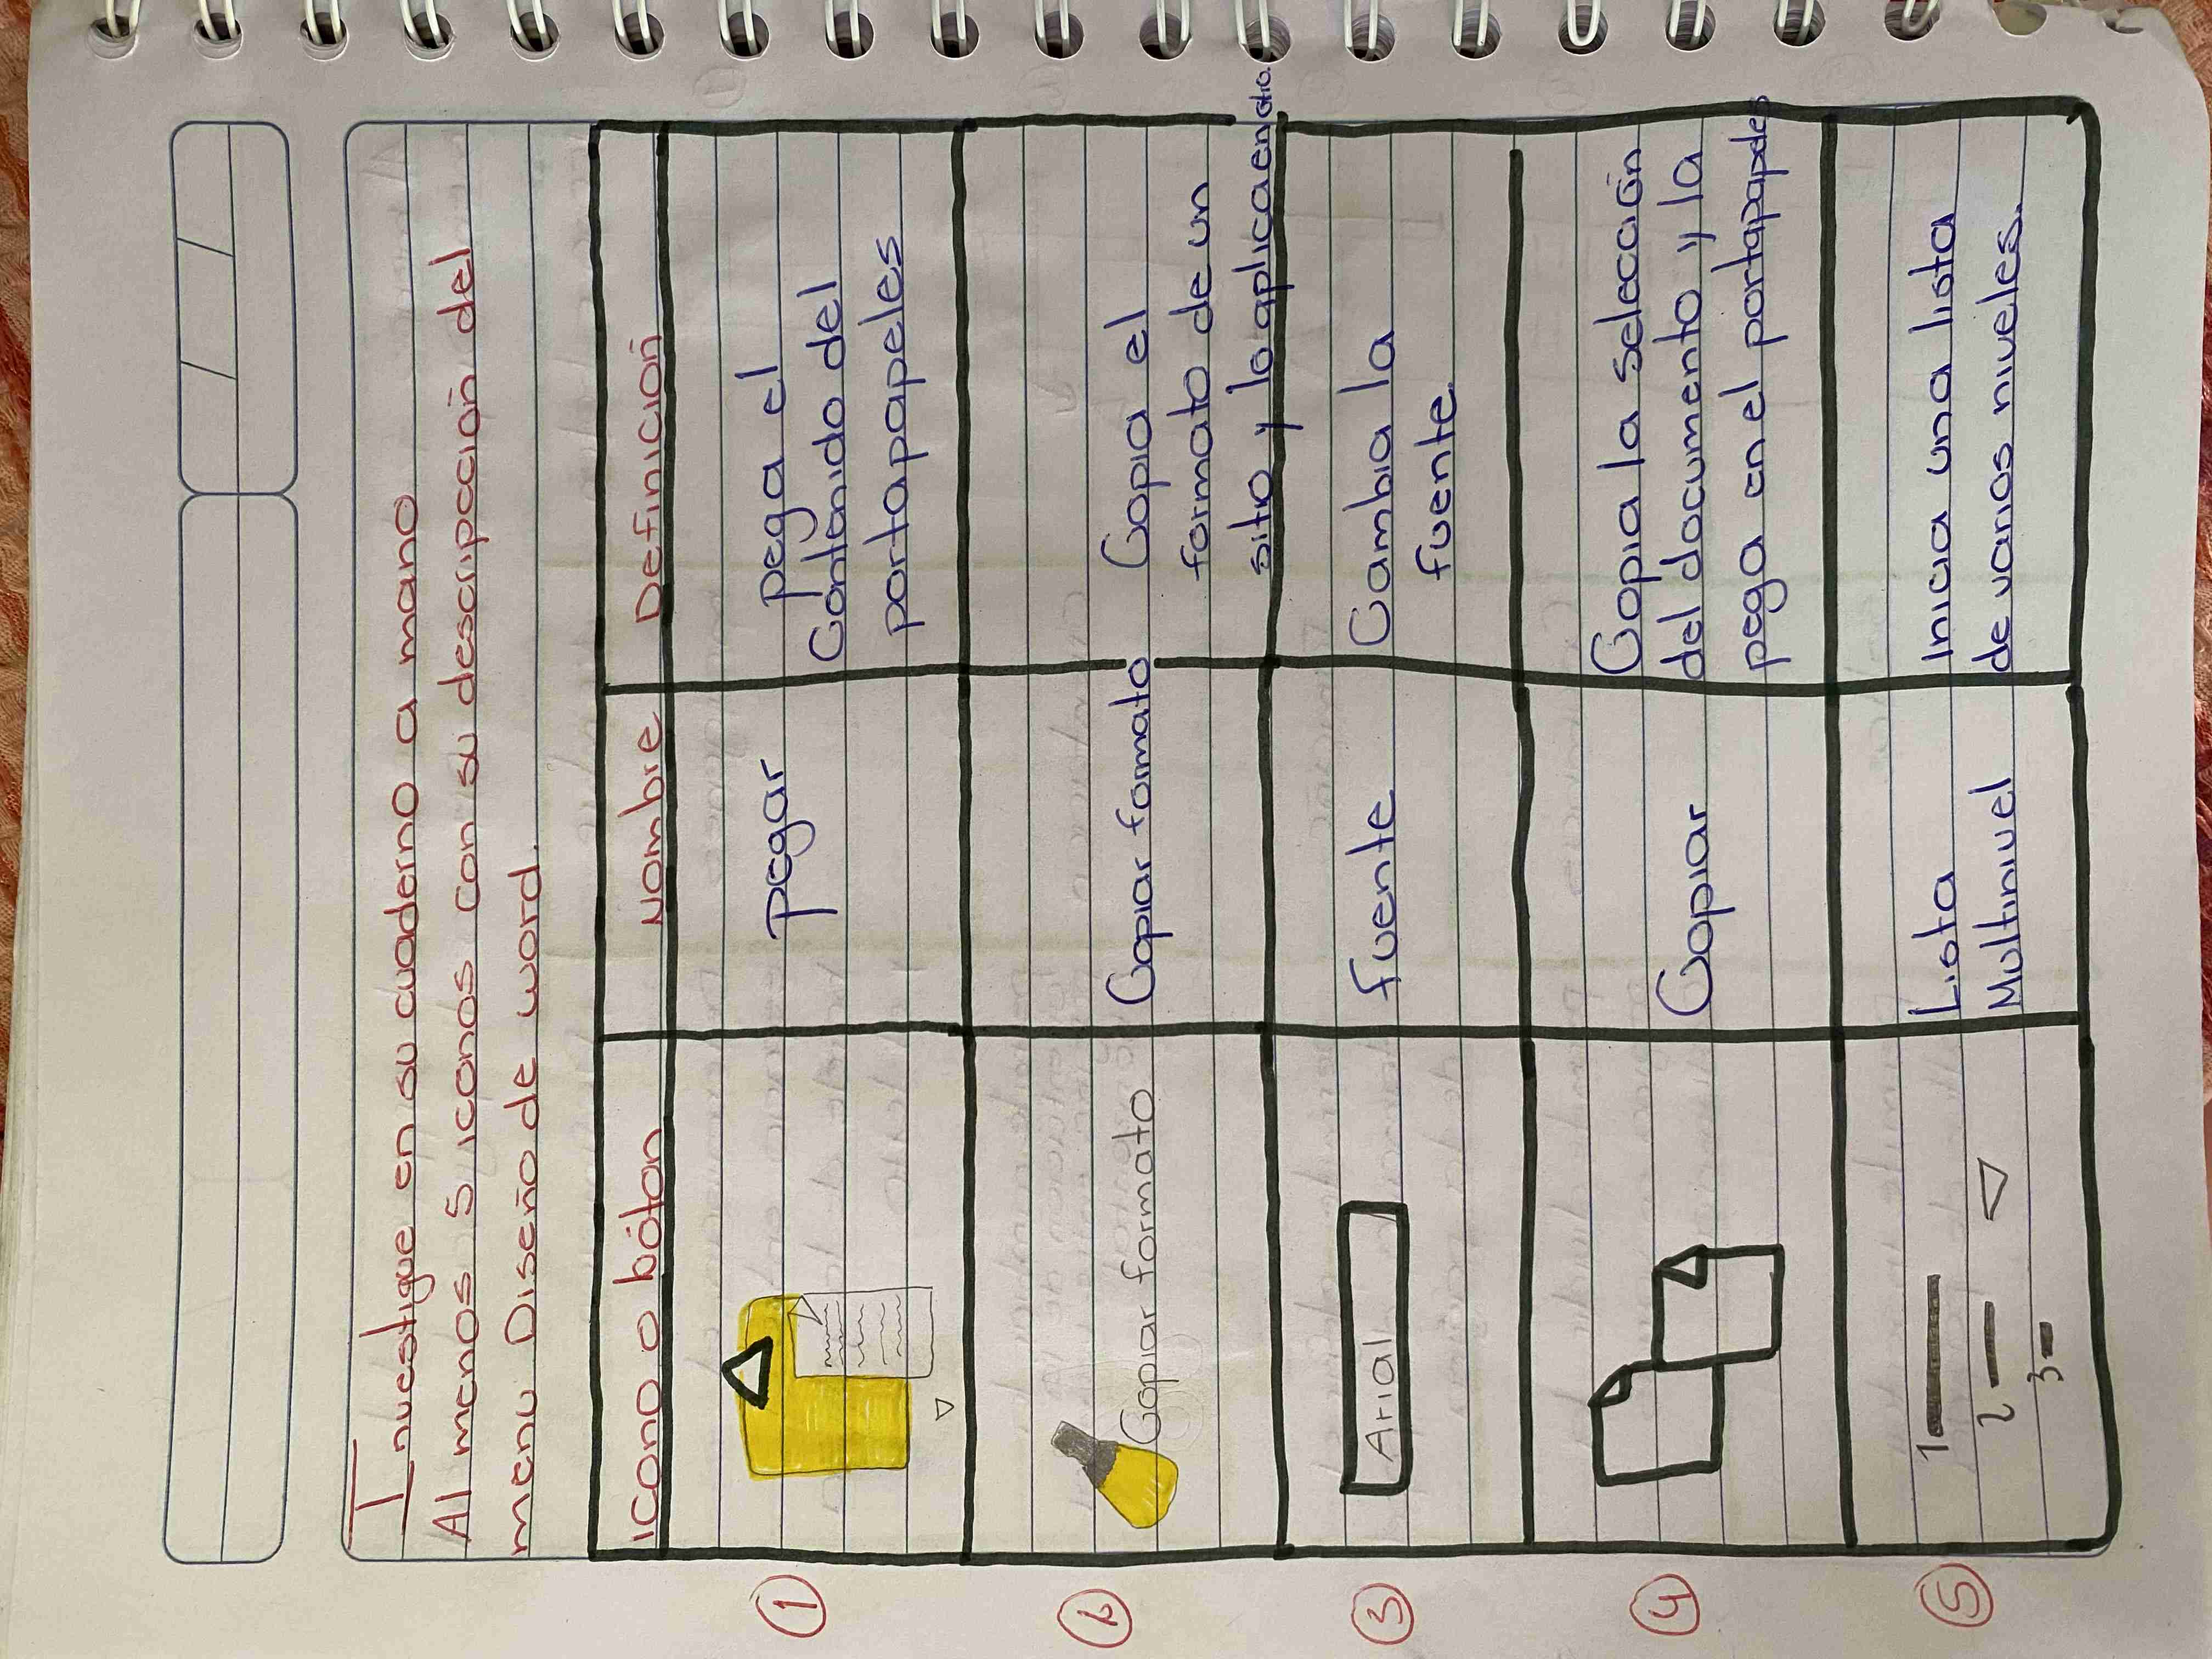 Investigue en su cuaderno a mano
Al menos 5 iconos con su descripcción del
menu Diseño de word.
Icono o bóton Nombre Definición
1
pegar
pega el
Contenido del
portapapeles
2
Copiar formato
Copiar formato
Copia el
formato de un
sitio y lo aplica en otro.
3
Arial
Fuente
Cambia la
fuente
4
Copiar
Copia la selección
del documento y la
pega en el portapapeles
5
1
2
3
Lista
Multinivel
Inicia una lista
de varios niveles.